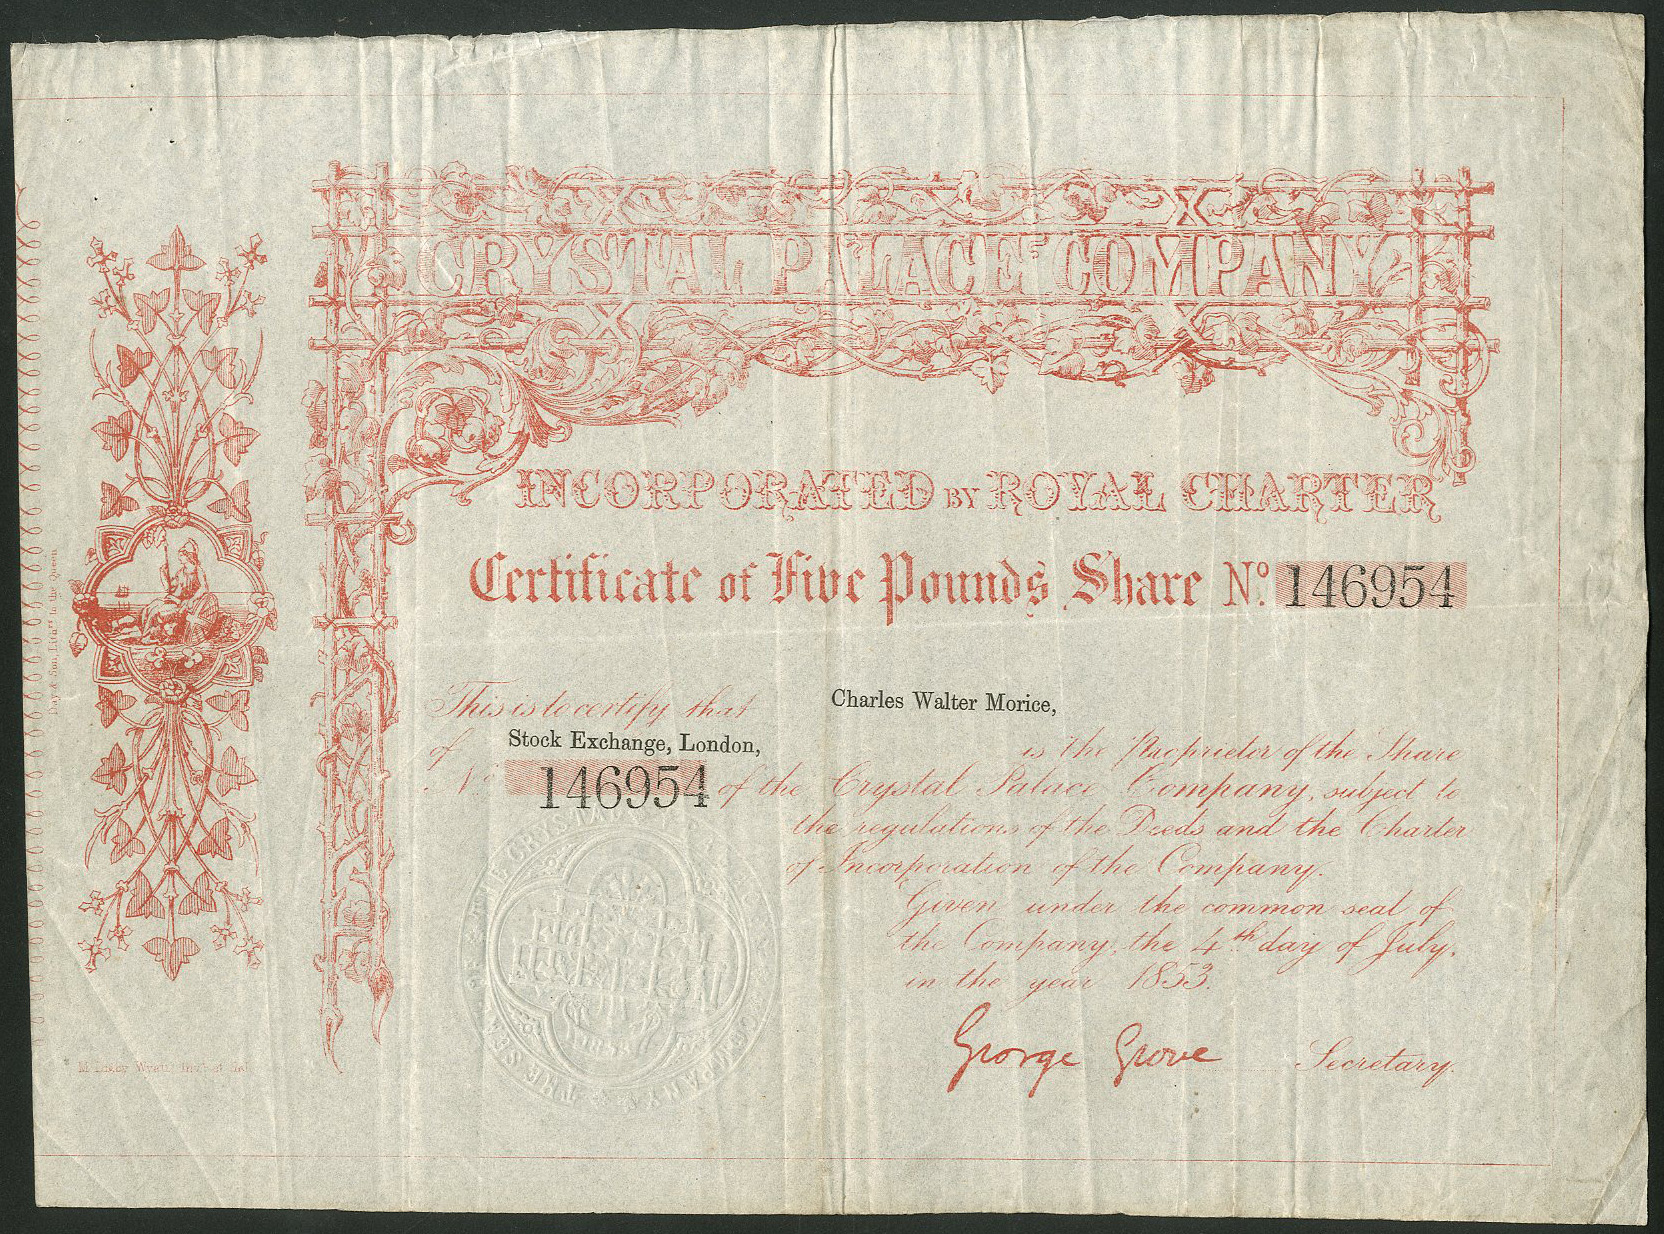 CRYSTAL PALACE COMPANY
INCORPORATED BY ROYAL CHARTER
Certificate of Five Pounds Share No. 146954
This is to certify that Charles Walter Morice,
of Stock Exchange, London, is the Proprietor of the Share
No. 146954 of the Crystal Palace Company, subject to
the regulations of the Deeds and the Charter
of Incorporation of the Company.
Given under the common seal of
the Company, the 4th day of July,
in the year 1853.
George Grove Secretary.
THE CRYSTAL PALACE COMPANY
THE SEAL OF
Day & Son, Lithrs to the Queen
M. Digby Wyatt